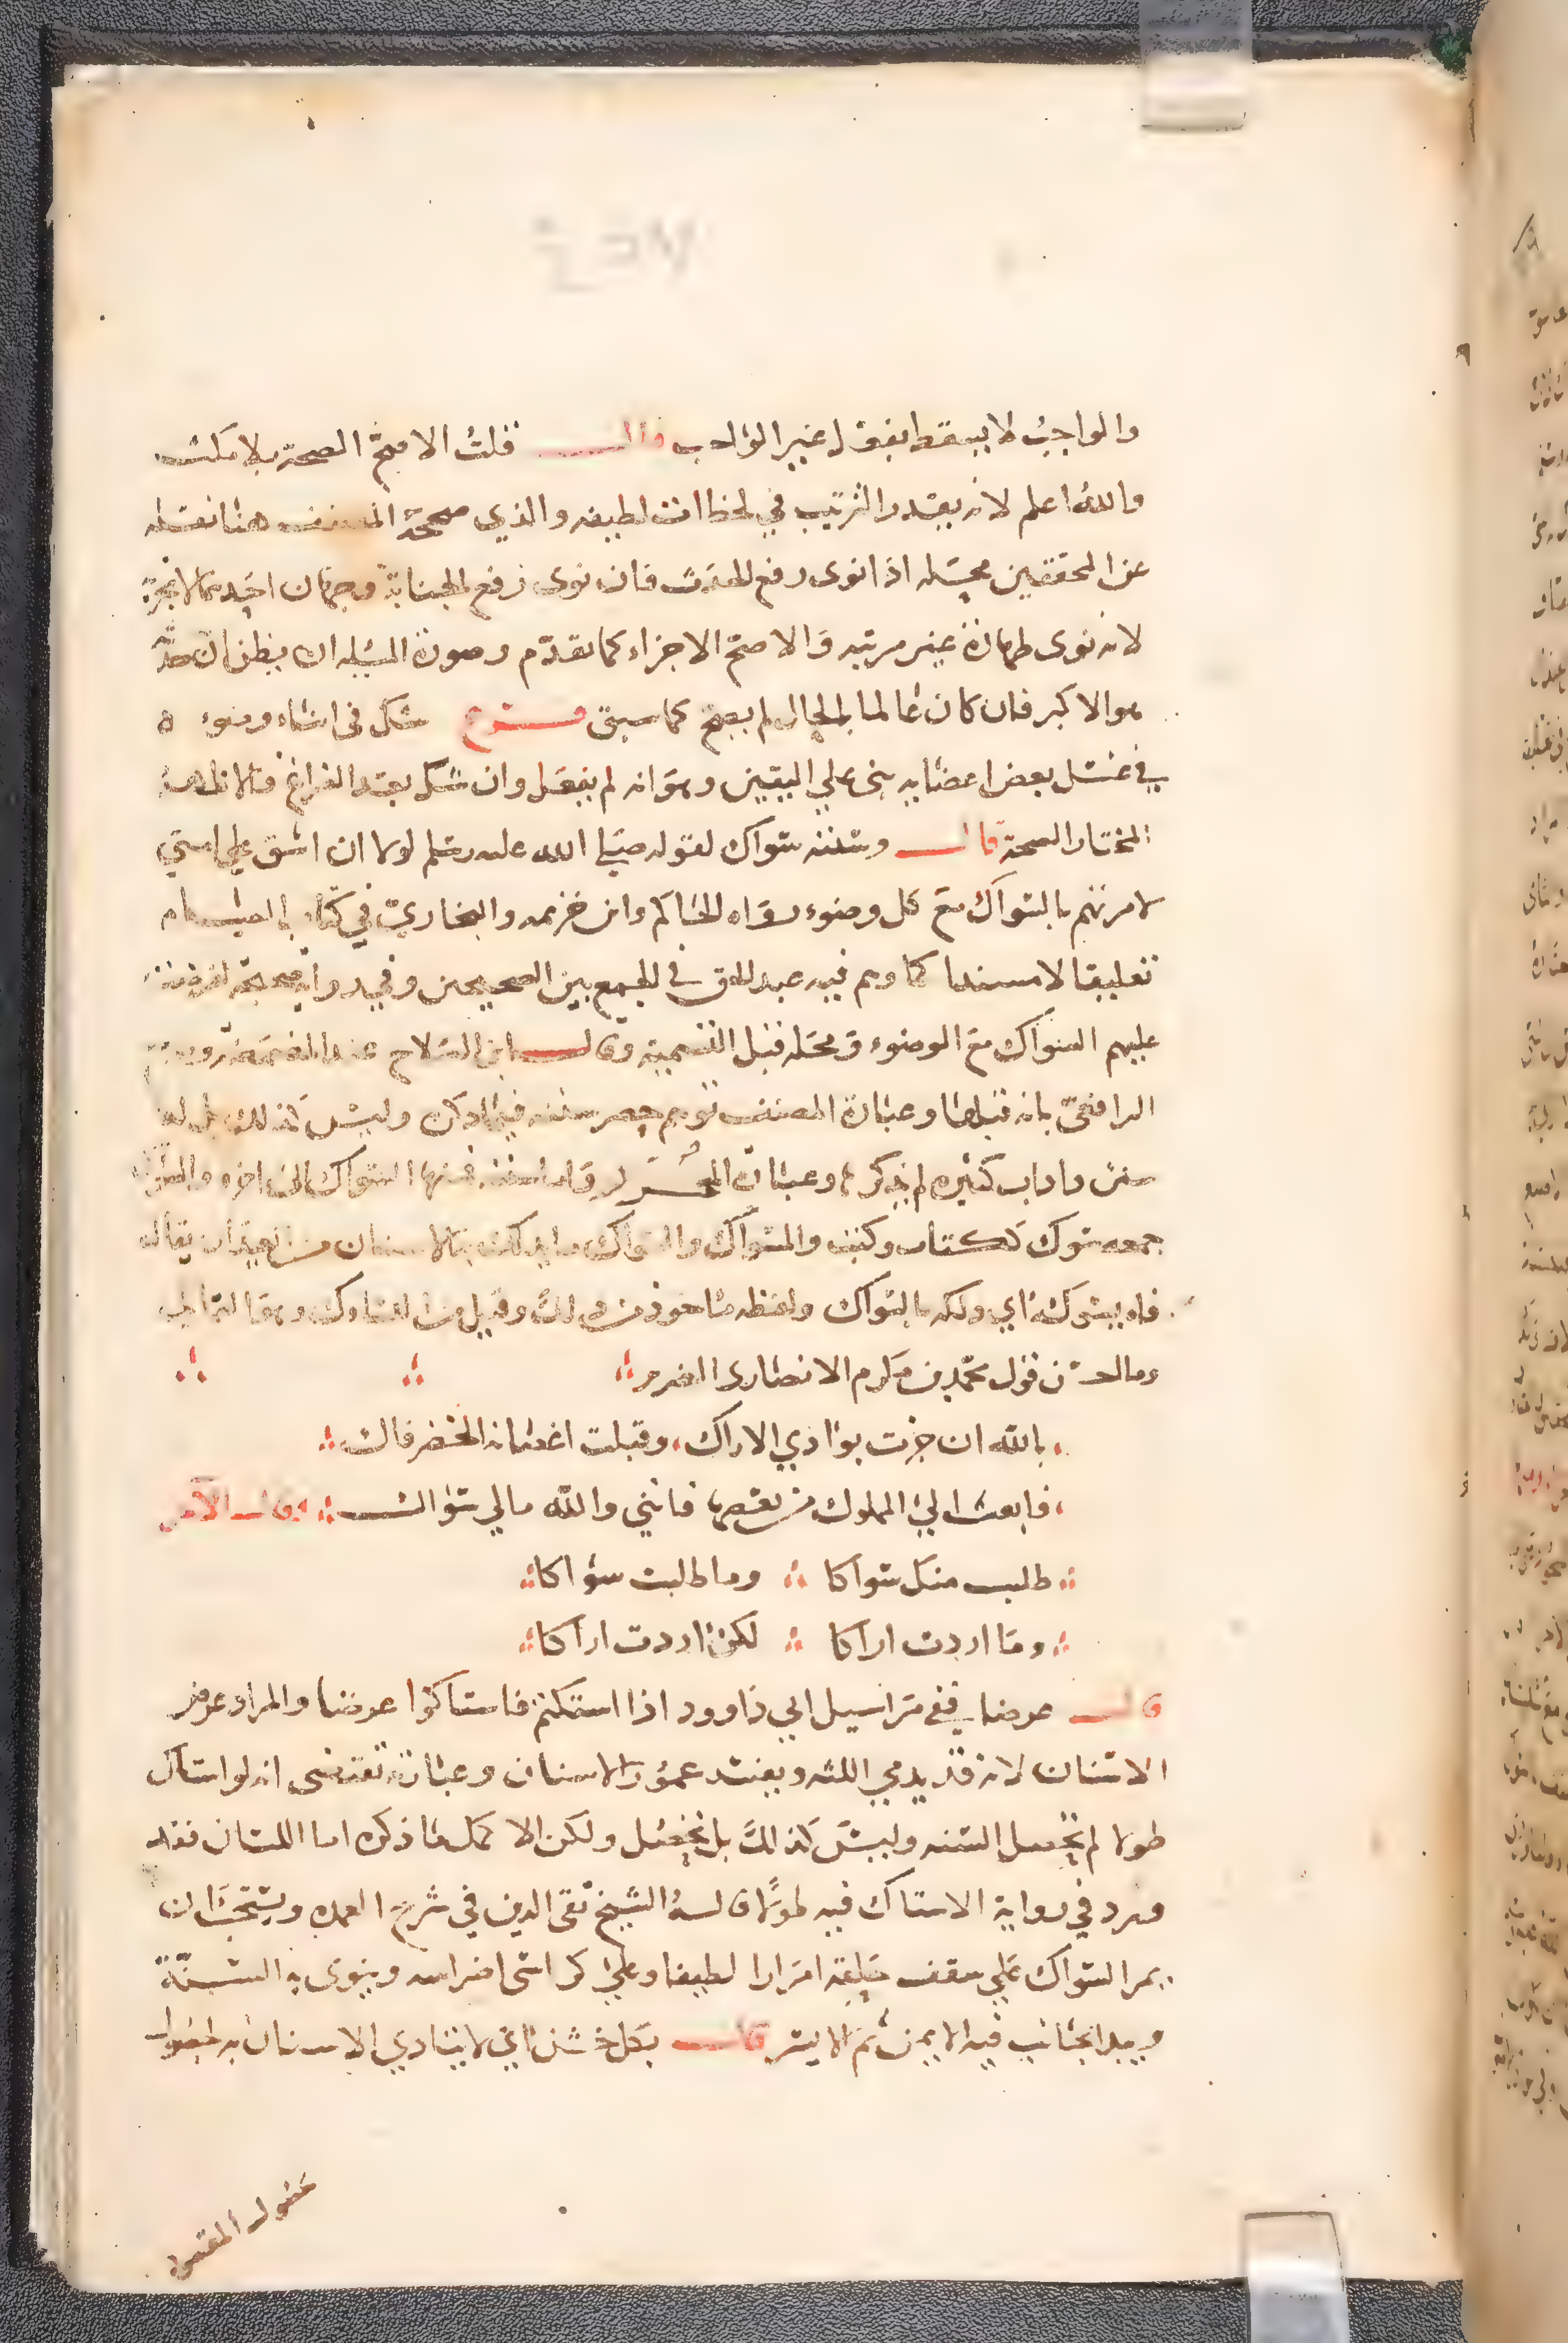 والواجب لا يسقط بفعل غير الواجب قال قلت الاصح الصحة بلا مكث
والله اعلم لانه يقدر الترتيب في لحظات لطيفه والذي صححه المصنف هنا نقله
عن المحققين محله اذا نوى رفع الحدث فان نوى رفع الجنابة فوجهان احدهما لا يجزيه
لانه نوى طهارة غير مرتبه والاصح الاجزاء كما تقدم وصورة المسئله ان يظن ان حدثه
هو الاكبر فان كان عالما بالحال لم يصح كما سبق فرع شك في اثناء وضوء ه
في غسل بعض اعضايه بنى علي اليقين وهو انه لم يفعل وان شك بعد الفراغ فالاظهر
المختار الصحة قال وسننه سواك لقوله صلى الله عليه وسلم لولا ان اشق علي امتي
لامرتهم بالسواك مع كل وضوء رواه الحاكم وابن خزيمه والبخاري في كتاب الصيام
تعليقا لا مسندا كما وهم فيه عبد الحق في الجمع بين الصحيحين وفي رواية صحيحة لفرضت
عليهم السواك مع الوضوء ومحله قبل التسمية وقال ابن الصلاح عند المضمضة
الرافعي بانه قبلها وعبارة المصنف توهم حصر سننه فيما ذكر وليس كذلك بل له
سنن واداب كثيره لم يذكرها وعبارة المحرر واما سننه فمنها السواك الى اخره والسواك
جمعه سوك ككتاب وكتب والمسواك والسواك ما يدلك به الاسنان من العيدان يقال
فاه يسوكه اي دلكه بالسواك ولفظه ماخوذ من ذلك وقيل من التساوك وهو التمايل
وما احسن قول محمد بن مكرم الانصارى
بالله ان جزت بوادي الاراك وقبلت اغصانه الخضر فاك
فابعث الي المملوك من بعضها فانني والله مالي سواك وقال الاخر
طلبت منك سواكا وما طلبت سواكا
وما اردت اراكا لكن اردت اراكا
قال عرضا ففي مراسيل ابي داوود اذا استكتم فاستاكوا عرضا والمراد عرض
الاسنان لانه قد يدمي اللثه ويفسد عمور الاسنان وعبارته تقتضى انه لو استاك
طولا لم تحصل السنه وليس كذلك بل تحصل ولكن الاكمل ما ذكره اما اللسان فقد
ورد في رواية الاستاك فيه طولا قاله الشيخ تقى الدين في شرح العمده ويستحب ان
يمر السواك علي سقف حلقه امرارا لطيفا وعلي كراسى اضراسه وينوى به السنة
ويبدا بجانب فيه الايمن ثم الايسر قال بكل خشن اي لا يتادي الاسنان به لحصول
حصول المقصود